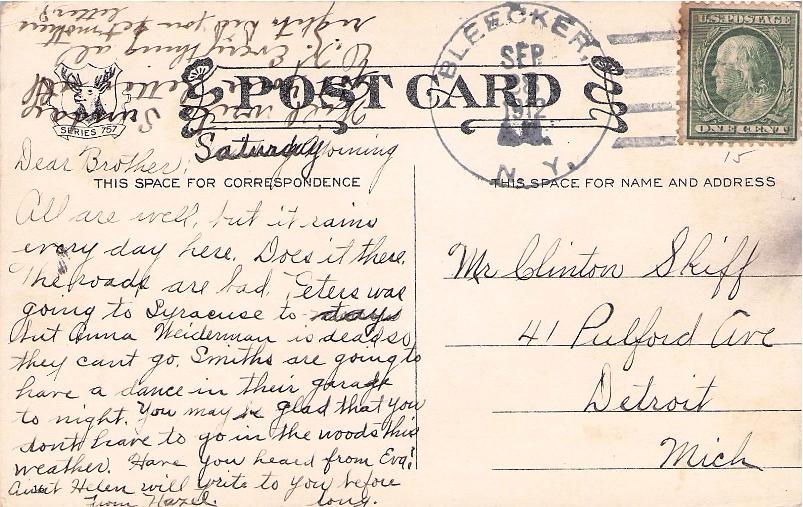 BLEECKER,
SEP
28
1912
A.M.
N. Y.
U.S. POSTAGE
ONE CENT
SERIES 757
POST CARD
15
Saturday Morning
Dear Brother;
THIS SPACE FOR CORRESPONDENCE
THIS SPACE FOR NAME AND ADDRESS
All are well, but it rains
every day here. Does it there.
The roads are bad. Peters was
going to Syracuse to days
but Anna Weiderman is dead so
they cant go. Smiths are going to
have a dance in their garade
to night. You may be glad that you
dont have to go in the woods this
weather. Have you heard from Eva?
Aunt Helen will write to you before
long.
From Hazel.
Mr Clinton Skiff
41 Pulford Ave
Detroit
Mich
Will write
Sunday
O.K. Everything al
right. Did you get mothers
letter?